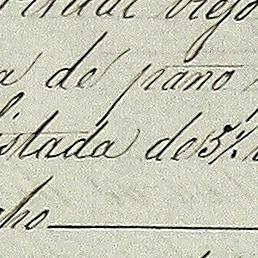 viejo
a de paño
listada de 5%
cho